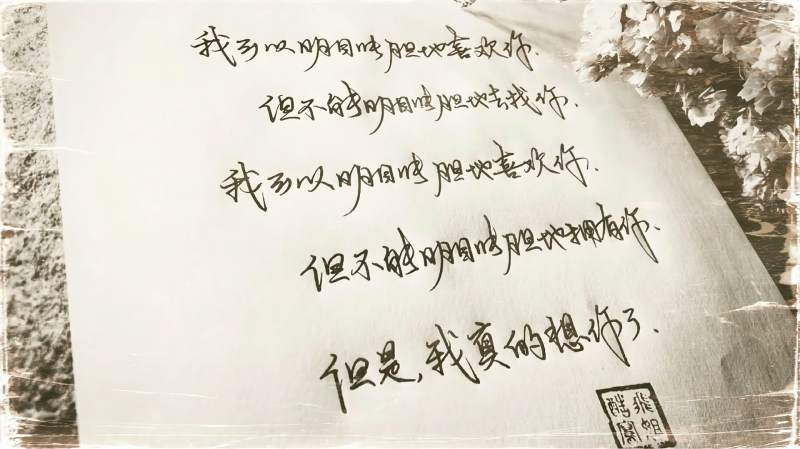 我可以明目张胆地喜欢你.
但不能明目张胆地去找你.
我可以明目张胆地喜欢你.
但不能明目张胆地拥有你.
但是,我真的想你了.